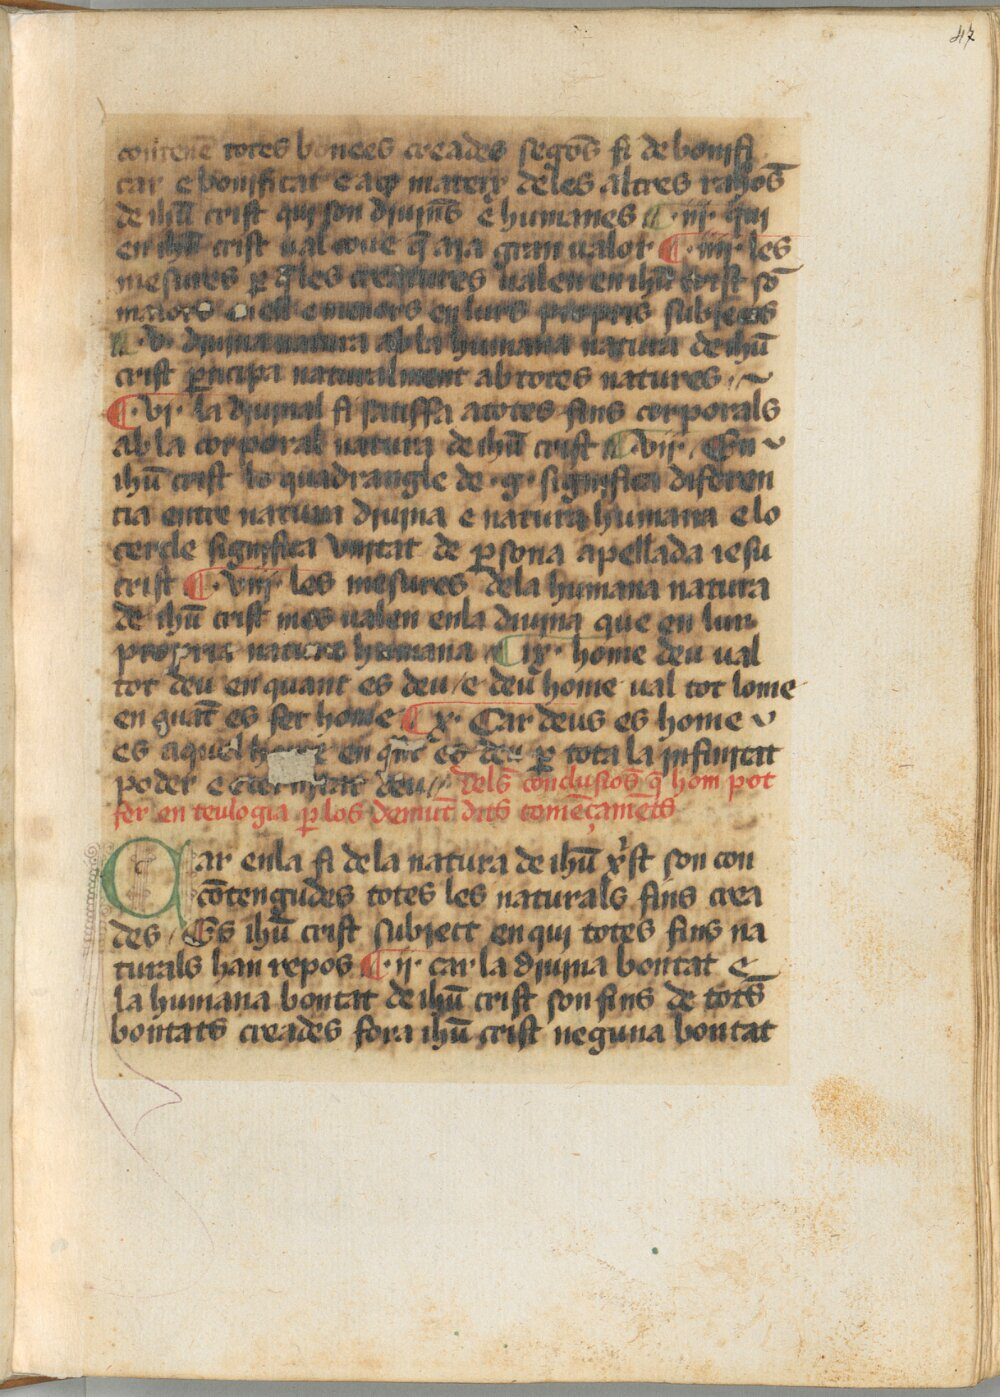 47
contene totes bonees creades segōs fi de bonifi
car e bonificat e aço mateix de les altres rahōs
de ihū crist qui son diuinēs e humanes ¶ ·iii· qui
en ihū crist val coue q̄ aia gran valor ¶ ·iiii· les
mesures ꝑ q̄ les creatures valen en ihū crist sō
maiors en ell e menors en lurs propris subiects
¶ ·v· diuina natura ab la humana natura de ihū
crist ꝑticipa naturalment ab totes natures
¶ ·vi· la diuinal fi satisffa a totes fins corporals
ab la corporal natura de ihū crist ¶ ·vii· En
ihū crist lo quadrangle de ·g· significa diferen
cia entre natura diuina e natura humana e lo
cercle significa vnitat de ꝑsona apellada iesu
crist ¶ ·viii· les mesures dela humana natura
de ihū crist mes valen enla diuina que en lur
propria natura humana ¶ ix· home deu val
tot deu en quant es deu / e deu home val tot lome
en quāt es fet home ¶ x· Car deus es home
es aquel home en q̄nt es deu ꝑ tota la infinitat
poder e eternitat deu // dels conclusiōs q̄ hom pot
fer en teulogia ꝑ los demūt dits comēçamēts
Car enla fi de la natura de ihū xp̄st son con
cōtengudes totes les naturals fins crea
des / Es ihū crist subiect en qui totes fins na
turals han repos ¶ ·ii· car la diuina bontat e
la humana bontat de ihū crist son fins de totš
bontats creades fora ihū crist neguna bontat